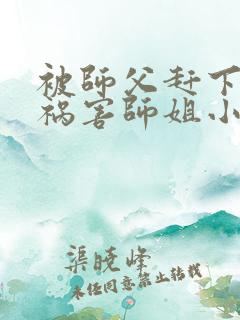 被師父赶下
祸害師姐小
渠晓峰
未任同意禁止转载